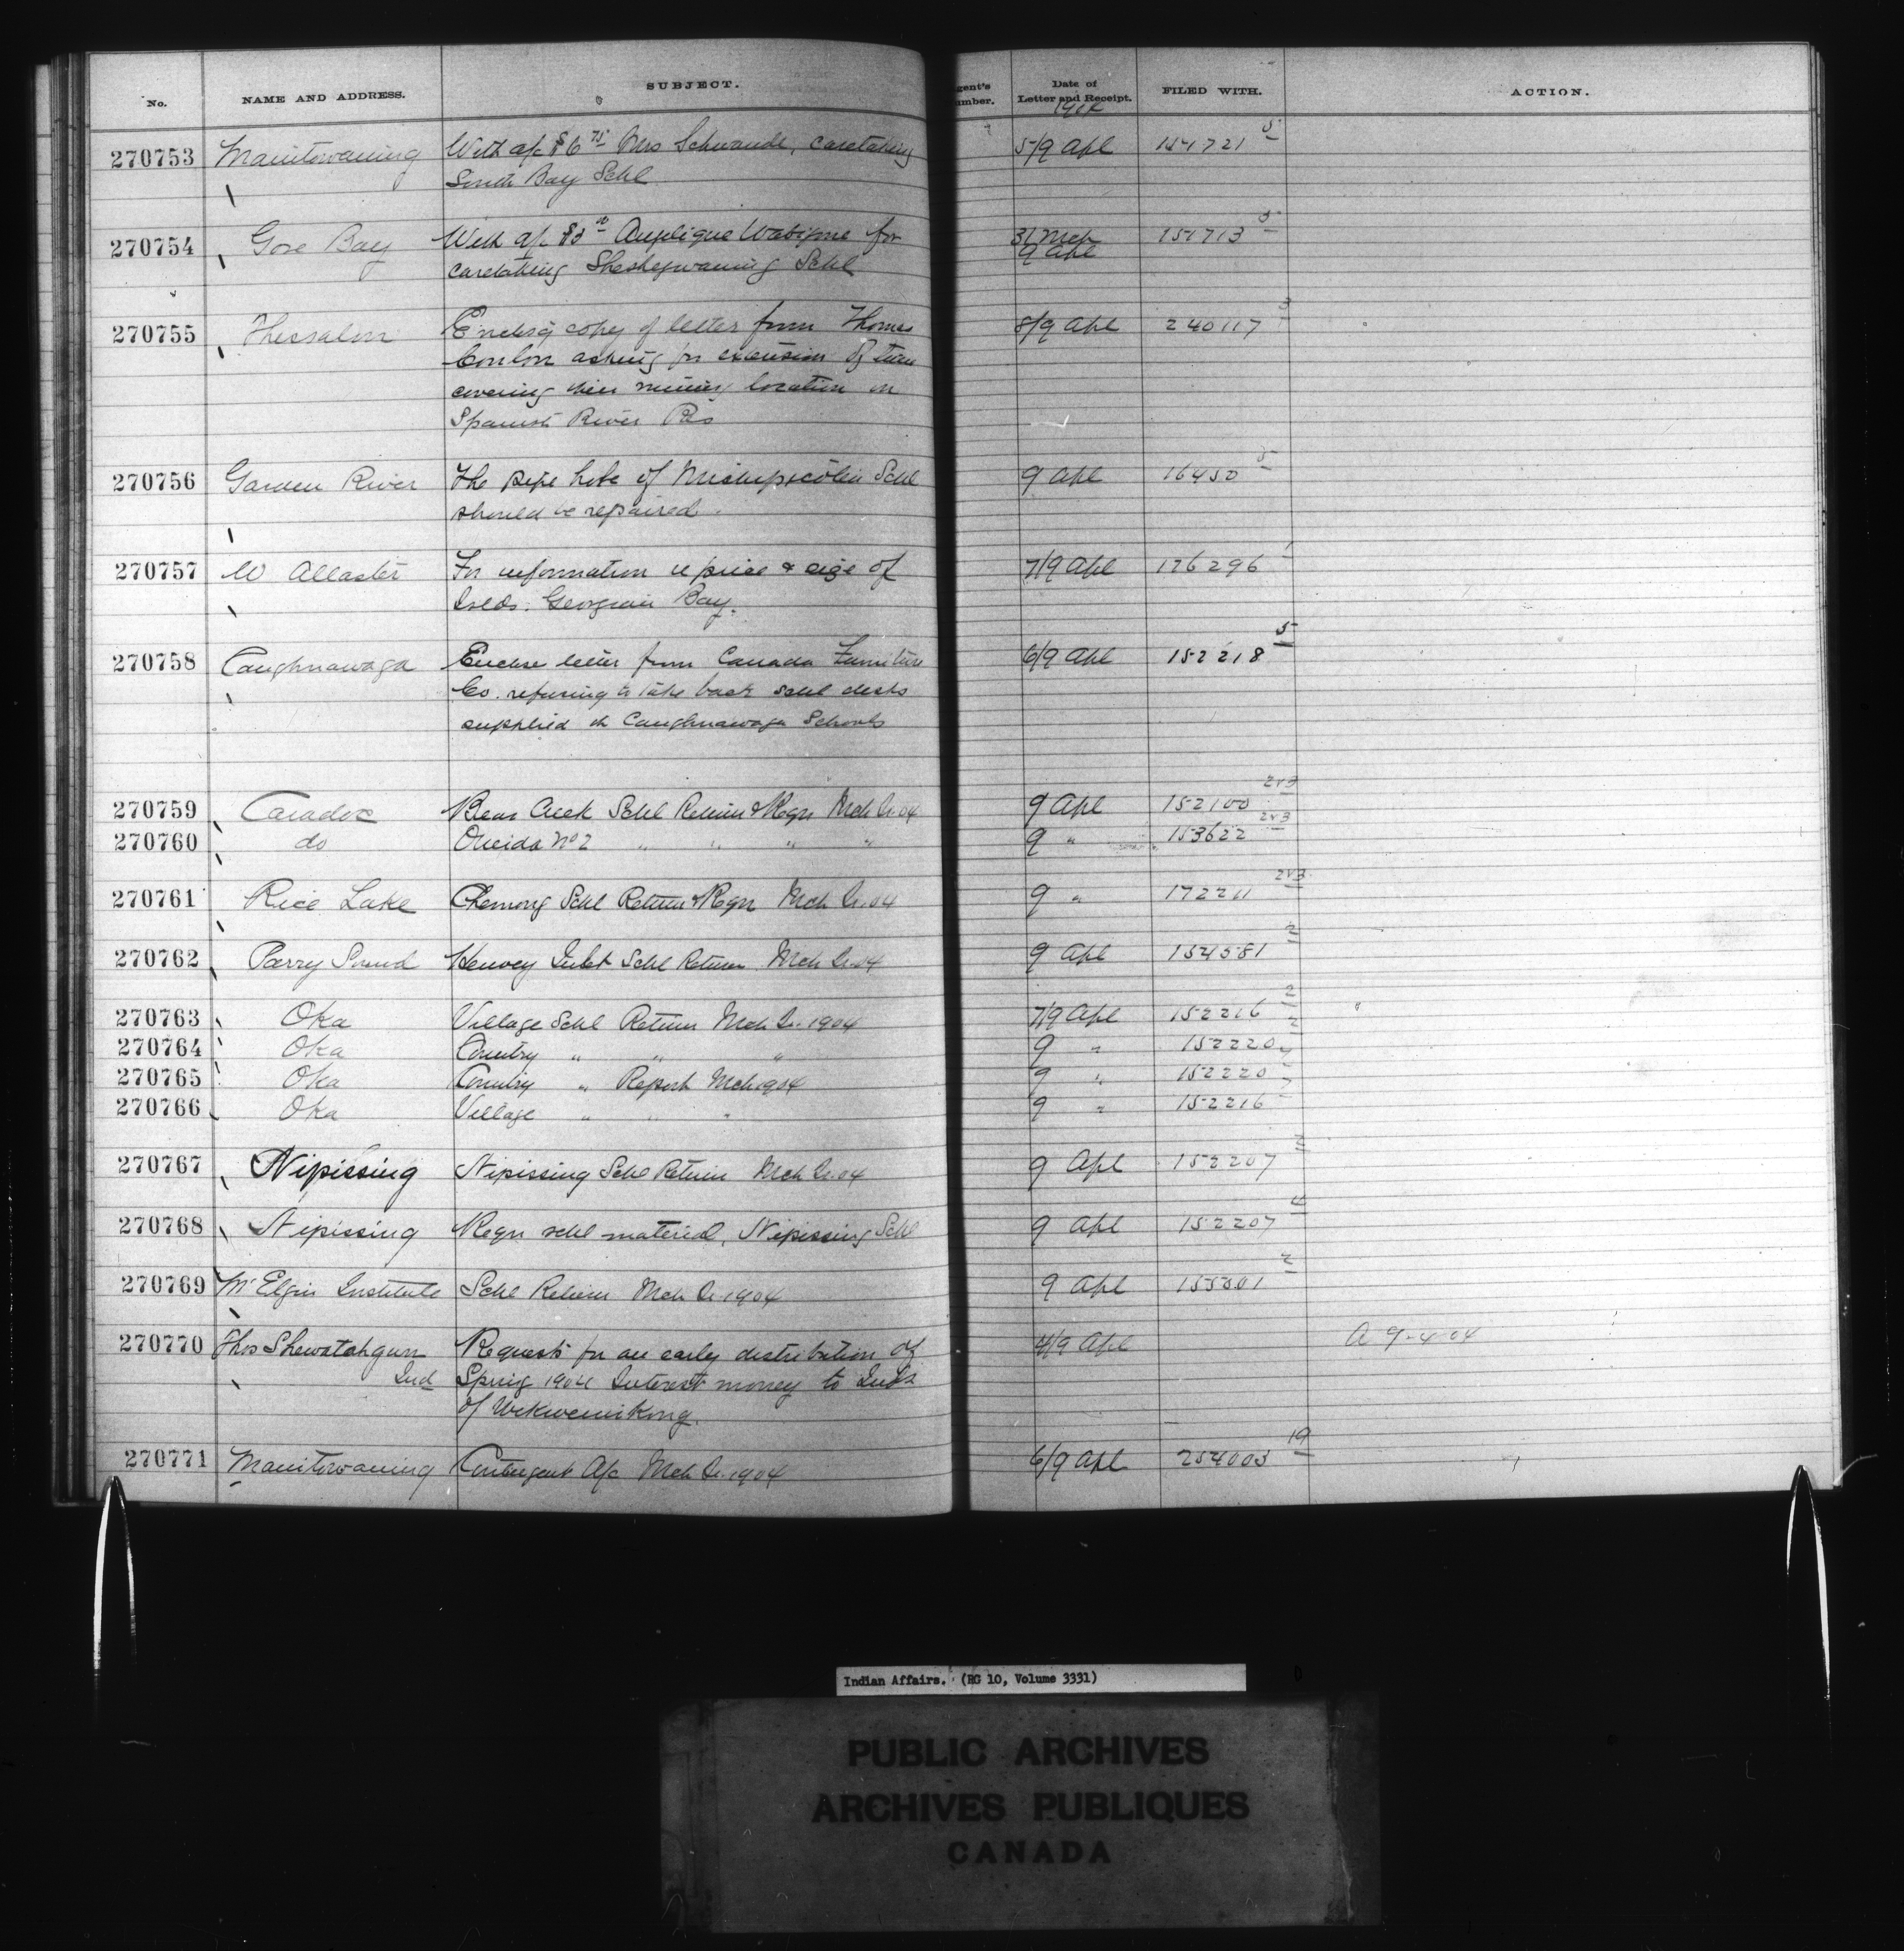 No. NAME AND ADDRESS. SUBJECT. gent's umber. Date of Letter and Receipt. FILED WITH. ACTION.
1904
270753 Manitowaning With a/c $6 75 Mrs Schwandt, caretaking 5/9 Apl 151721 5
South Bay Schl
270754 Gore Bay With a/c $3 Anplique Wabigwe for 31 Mch 151713 5
caretaking Sheshegwaning Schl 9 Apl
270755 Thessalon Enclosg copy of letter from Thomas 8/9 Apl 240117 3
Conlon asking for extension of time
covering their mining location on
Spanish River Res
270756 Garden River The pipe hole of Michipicoten Schl 9 Apl 16450 5
should be repaired.
270757 W Allaster For information re price & size of 7/9 Apl 176296 1
Islds. Georgian Bay.
270758 Caughnawaga Enclose letter from Canada Furniture 6/9 Apl 152218 5
Co. refusing to take back schl desks
supplied to Caughnawaga Schools
270759 Caradoc Bear Creek Schl Return & Reqn Mch Qr. 04 9 Apl 152100 2&3
270760 do Oneida No 2 " " " " 9 " 153622 2&3
270761 Rice Lake Chemong Schl Return & Reqn Mch Qr. 04 9 " 172211 2&3
270762 Parry Sound Henvey Inlet Schl Return Mch Qr. 04 9 Apl 154581 2
270763 Oka Village Schl Return Mch Qr. 1904 7/9 Apl 152216 2
270764 Oka Country " " " 9 " 152220 2
270765 Oka Country " Report Mch 1904 9 " 152220
270766 Oka Village " " " 9 " 152216
270767 Nipissing Nipissing Schl Return Mch Qr. 04 9 Apl 152207 2
270768 Nipissing Reqn schl material, Nipissing Schl 9 Apl 152207 4
270769 Mt Elgin Institute Schl Return Mch Qr. 1904 9 Apl 155301 2
270770 Thos Shewatahgun Requests for an early distribution of 4/9 Apl A 9-4-04
Ind Spring 1904 Interest money to Inds
of Wikwemikong.
270771 Manitowaning Contingent A/c Mch Qr. 1904 6/9 Apl 254003 19
Indian Affairs. (RG 10, Volume 3331)
PUBLIC ARCHIVES
ARCHIVES PUBLIQUES
CANADA